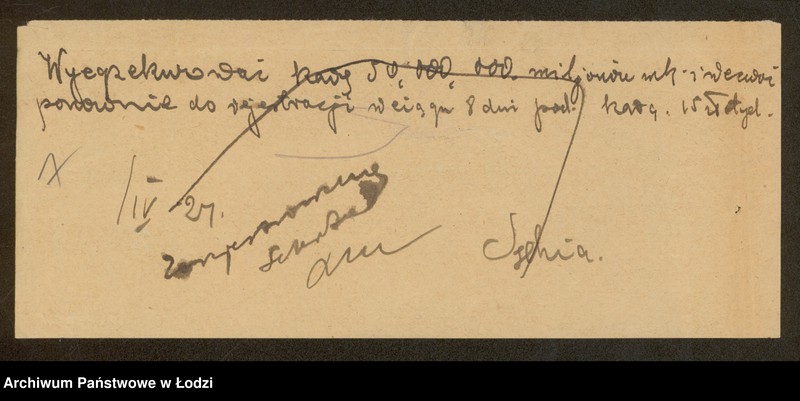 Wyegzekwować karę 50,000,000. miljonów mk. i wezwać
ponownie do rejestracji w ciągu 8 dni pod. karą. 15 zł
X
/IV 24.
Sędzia.
Archiwum Państwowe w Łodzi